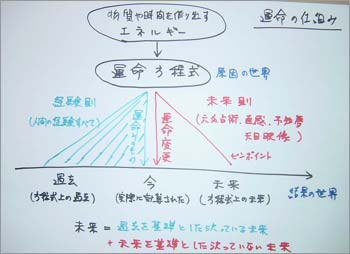 運命の仕組み
物質や時間を作り出す
エネルギー
運命方程式
原因の世界
経験則
(人間の経験すべて)
運命そのもの
運命変更
未来則
(六爻占術、直感、予知夢
天目映像)
ピンポイント
過去
(方程式上の過去)
今
(実際に配算された)
未来
(方程式上の未来)
結果の世界
未来=過去を基礎とした決っている未来
+未来を基礎とした決っていない未来